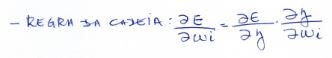 - REGRA DA CADEIA: ∂E/∂wi = ∂E/∂y · ∂y/∂wi